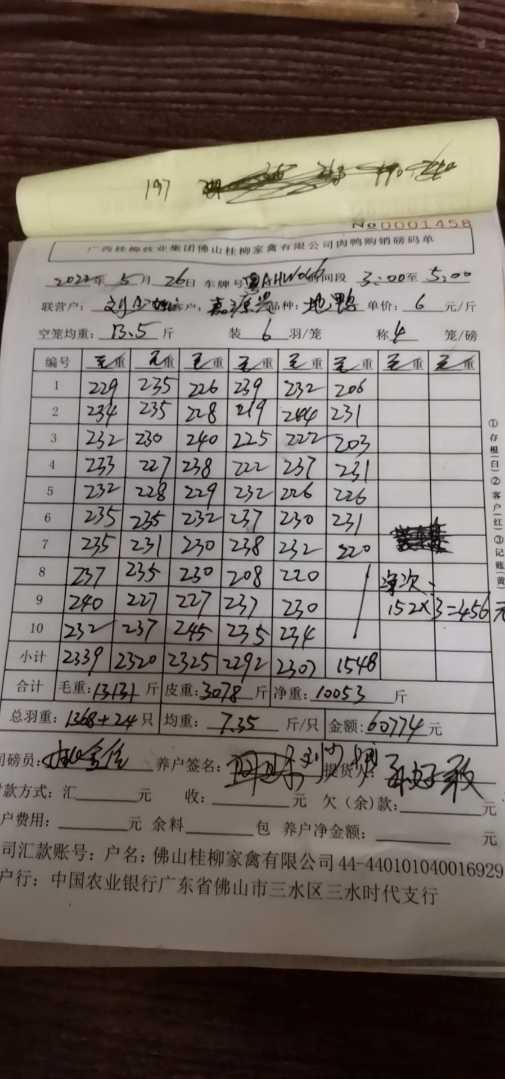 197
No 0001458
广西桂柳牧业集团佛山桂柳家禽有限公司肉鸭购销磅码单
2022年 5月 26日 车牌号 时间段 3:00至 5:00
联营户: 客户: 品种: 地鸭 单价: 6 元/斤
空笼均重: 13.5 斤 装 6 羽/笼 称 4 笼/磅
编号 毛重 毛重 毛重 毛重 毛重 毛重 毛重 毛重
1 229 235 226 239 232 206
2 234 235 228 219 244 231
3 232 230 240 225 222 203
4 233 227 238 222 237 231
5 232 228 229 232 226 226
6 235 235 232 237 230 231
7 235 231 230 238 232 220
8 237 235 230 208 220
9 240 227 227 237 230 152×3=456元
10 232 237 245 235 234
小计 2339 2320 2325 2292 2307 1548
合计 毛重: 13131 斤 皮重: 3078 斤 净重: 10053 斤
总羽重: 1368+24 只 均重: 7.35 斤/只 金额: 60774 元
司磅员: 养户签名: 提货人:
付款方式: 汇 元 收: 元 欠(余)款: 元
户费用: 元 余料 包 养户净金额: 元
司汇款账号: 户名: 佛山桂柳家禽有限公司 44-440101040016929
户行: 中国农业银行广东省佛山市三水区三水时代支行
①存根(白)②客户(红)③记账(黄)